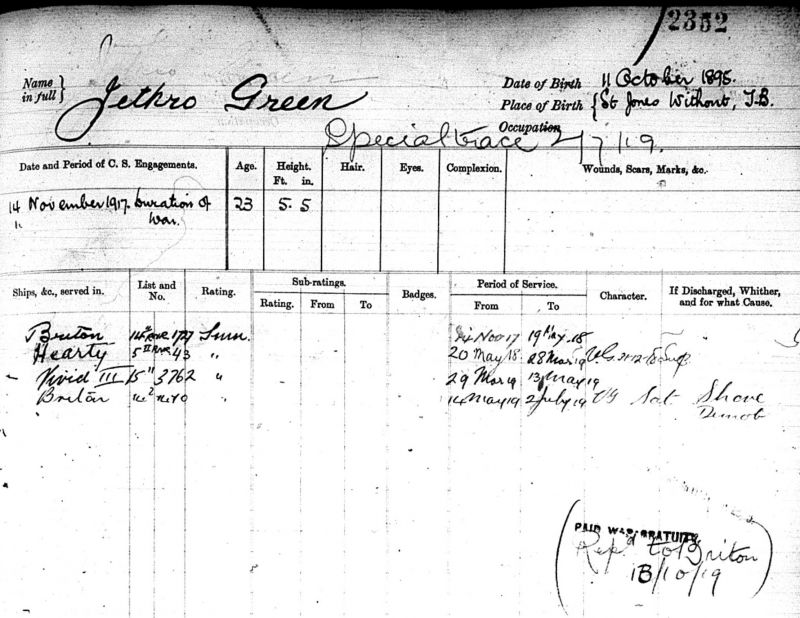 2352
Name in full } Jethro Green
Date of Birth 11 October 1895.
Place of Birth { St Jones Without, T.B.
Occupation
Special Grace 2/7/19.
Date and Period of C. S. Engagements. Age. Height. Ft. in. Hair. Eyes. Complexion. Wounds, Scars, Marks, &c.
14 November 1917. Duration of War. 23 5. 5
Ships, &c., served in. List and No. Rating. Sub-ratings. Rating. From To Badges. Period of Service. From To Character. If Discharged, Whither, and for what Cause.
Briton 1727 Smn. Nov 17 19 May 18
Hearty 5 43 " 20 May 18 28 Mar 19 V.G.
Vivid III 15 3762 " 29 Mar 19 13 May 19
Briton " 14 May 19 2 July 19 VG Sat Shore Demob
PAID WAR GRATUITY.
Rep'd to Briton
13/10/19